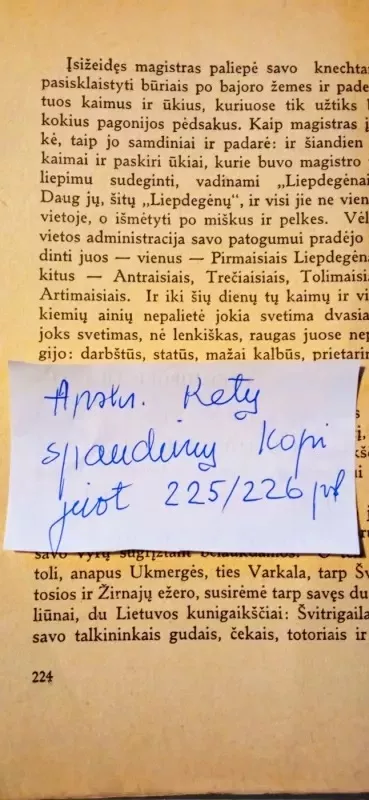 Įsižeidęs magistras paliepė savo knechta
pasisklaistyti būriais po bajoro žemes ir pade
tuos kaimus ir ūkius, kuriuose tik užtiks
kokius pagonijos pėdsakus. Kaip magistras į
kė, taip jo samdiniai ir padarė: ir šiandien
kaimai ir paskiri ūkiai, kurie buvo magistro
liepimu sudeginti, vadinami „Liepdegėnai
Daug jų, šitų „Liepdegėnų“, ir visi jie ne vien
vietoje, o išmėtyti po miškus ir pelkes. Vėl
vietos administracija savo patogumui pradėjo
dinti juos — vienus — Pirmaisiais Liepdegėn
kitus — Antraisiais, Trečiaisiais, Tolimaisi
Artimaisiais. Ir iki šių dienų tų kaimų ir vi
kiemių ainių nepalietė jokia svetima dvasia
joks svetimas, nė lenkiškas, raugas juose nep
gijo: darbštūs, statūs, mažai kalbūs, prietarin
spaudinių kopi
juot 225/226
savo vyrų sugrįžtant
toli, anapus Ukmergės, ties Varkala, tarp Šv
tosios ir Žirnajų ežero, susirėmė tarp savęs du
liūnai, du Lietuvos kunigaikščiai: Švitrigaila
savo talkininkais gudais, čekais, totoriais ir
224